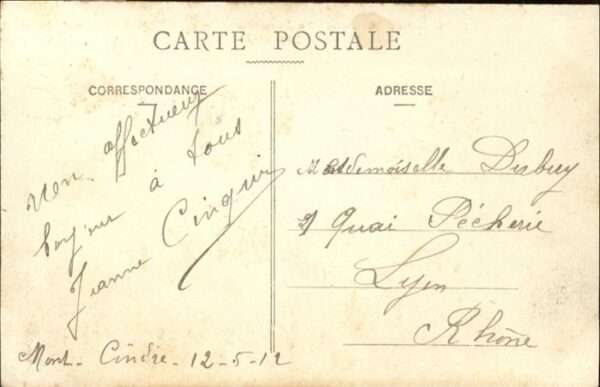 CARTE POSTALE
CORRESPONDANCE
affectueux
bonjour à tous
Jeanne Cinquin
Mont- Cindre - 12-5-12
ADRESSE
Mademoiselle Dubuy
21 Quai Pécherie
Lyon
Rhône